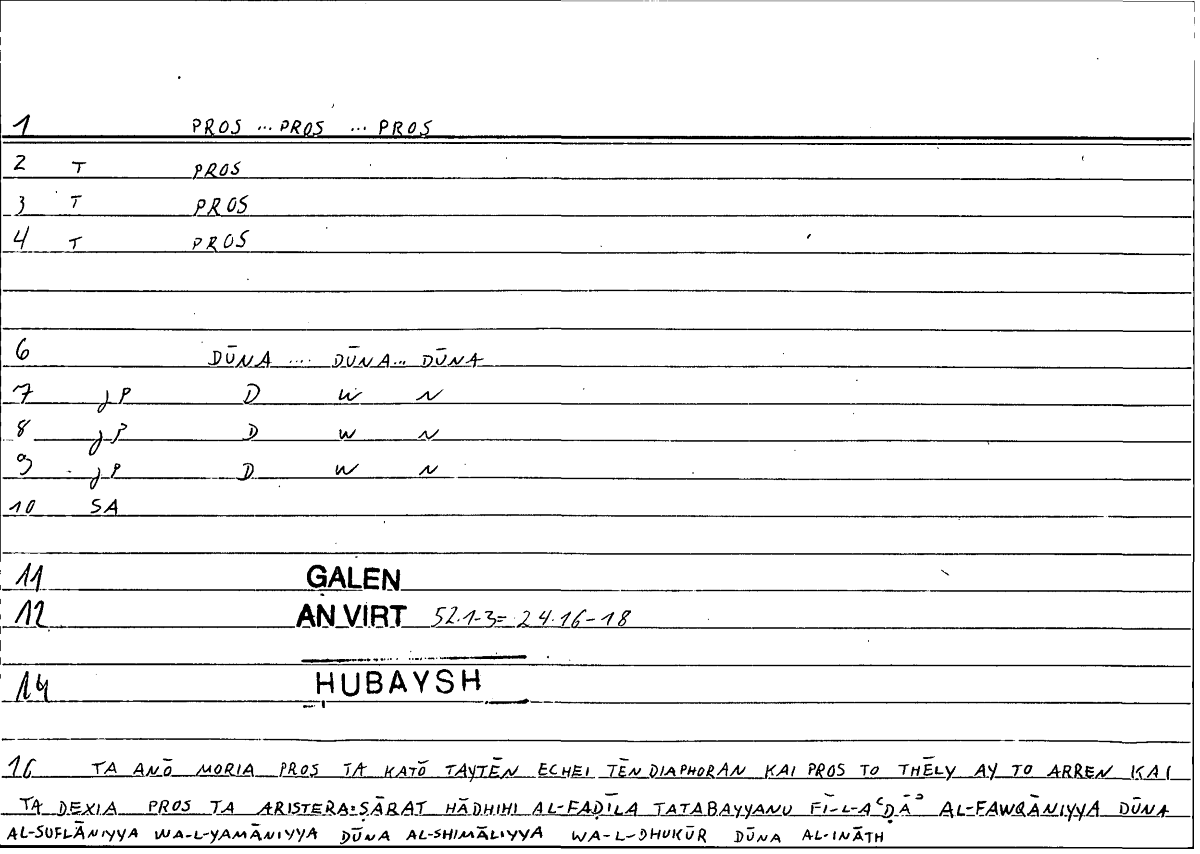 1 PROS ... PROS ... PROS
2 T PROS
3 T PROS
4 T PROS
6 DŪNA .... DŪNA... DŪNA
7 jP D W N
8 jP D W N
9 jP D W N
10 SA
11 GALEN
12 AN VIRT 52.1-3= 24.16-18
14 ḤUBAYSH
16 TA ANŌ MORIA PROS TA KATŌ TAYTĒN ECHEI TĒN DIAPHORAN KAI PROS TO THĒLY AY TO ARREN KAI
TA DEXIA PROS TA ARISTERA=ṢĀRAT HĀDHIHI AL-FAḌĪLA TATABAYYANU FĪ-L-AʿḌĀʾ AL-FAWQĀNIYYA DŪNA
AL-SUFLĀNIYYA WA-L-YAMĀNIYYA DŪNA AL-SHIMĀLIYYA WA-L-DHUKŪR DŪNA AL-INĀTH